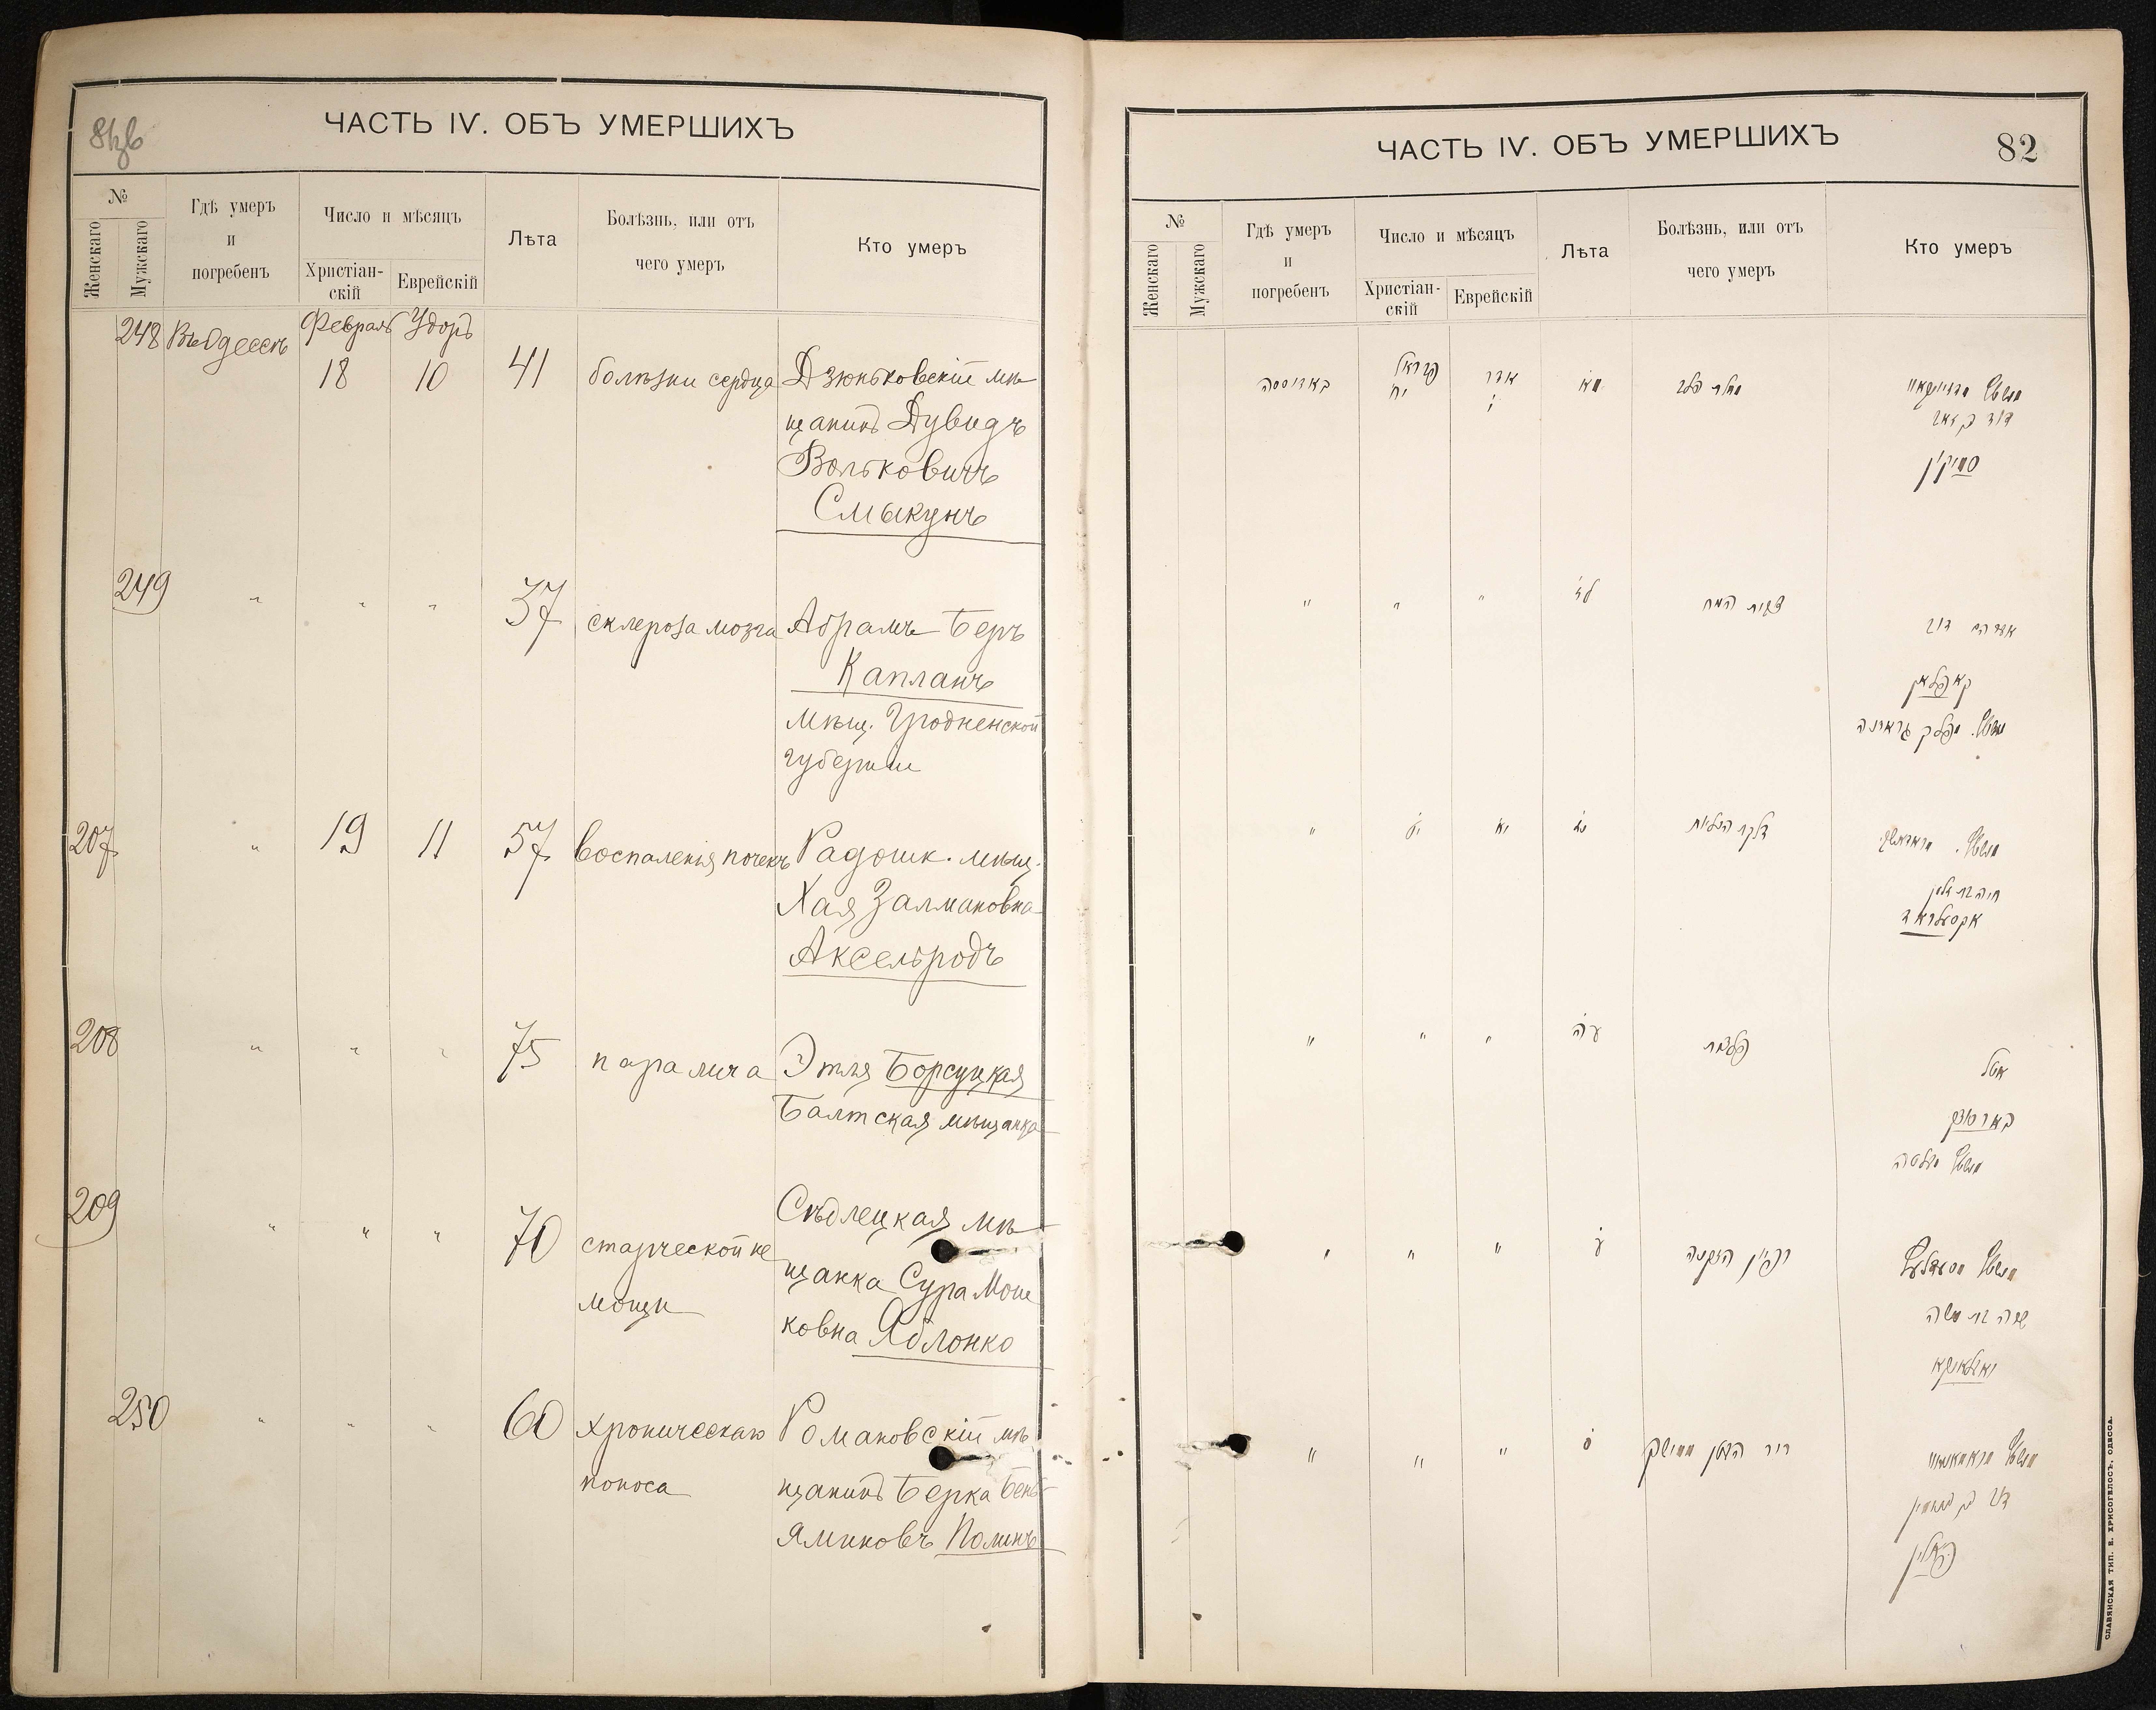 81зв
ЧАСТЬ IV. ОБЪ УМЕРШИХЪ
№
Женскаго
Мужскаго
Гдѣ умеръ
и
погребенъ
Число и мѣсяцъ
Христіан-
скій
Еврейскій
Лѣта
Болѣзнь, или отъ
чего умеръ
Кто умеръ
248 Въ Одессѣ Февраль Удоръ
18 10 41 болѣзни сердца Дзюньковскій мѣ
щанинъ Дувидъ
Вольковичъ
Смыкунъ
249 " " " 37 склероза мозга Абрамъ Беръ
Капланъ
мѣщ. Гродненской
губерніи
207 " 19 11 57 воспаленія почекъ Радошк. мѣщ.
Хая Залмановна
Аксельродъ
208 " " " 75 паралича Этля Борсуцкая
Балтская мѣщанка
209 " " " 70 старческой не
мощи
Сѣдлецкая мѣ
щанка Сура Мош
ковна Яблонко
250 " " " 60 хроническаго
поноса
Романовскій мѣ
щанинъ Берка Бень
яминовъ Полинъ
ЧАСТЬ IV. ОБЪ УМЕРШИХЪ
82
№
Женскаго
Мужскаго
Гдѣ умеръ
и
погребенъ
Число и мѣсяцъ
Христіан-
скій
Еврейскій
Лѣта
Болѣзнь, или отъ
чего умеръ
Кто умеръ
באדיססה פברואל אדר
יח י מא מחלת הלב
דוד בן זאב
סמיקון
" " " לז
אברהם דוב
קאפלאן
" יט יא נז דלקת הכליות
חיה בת זלמן
אקסעלראד
" " " עה
אטל
" " " ע רפיון הזקנה
שרה בת משה
יאבלאנקא
" " " ס
דוב בן בנימין
פאלין
СЛАВЯНСКАЯ ТИП. Е. ХРИСОГЕЛОСЪ, ОДЕССА.